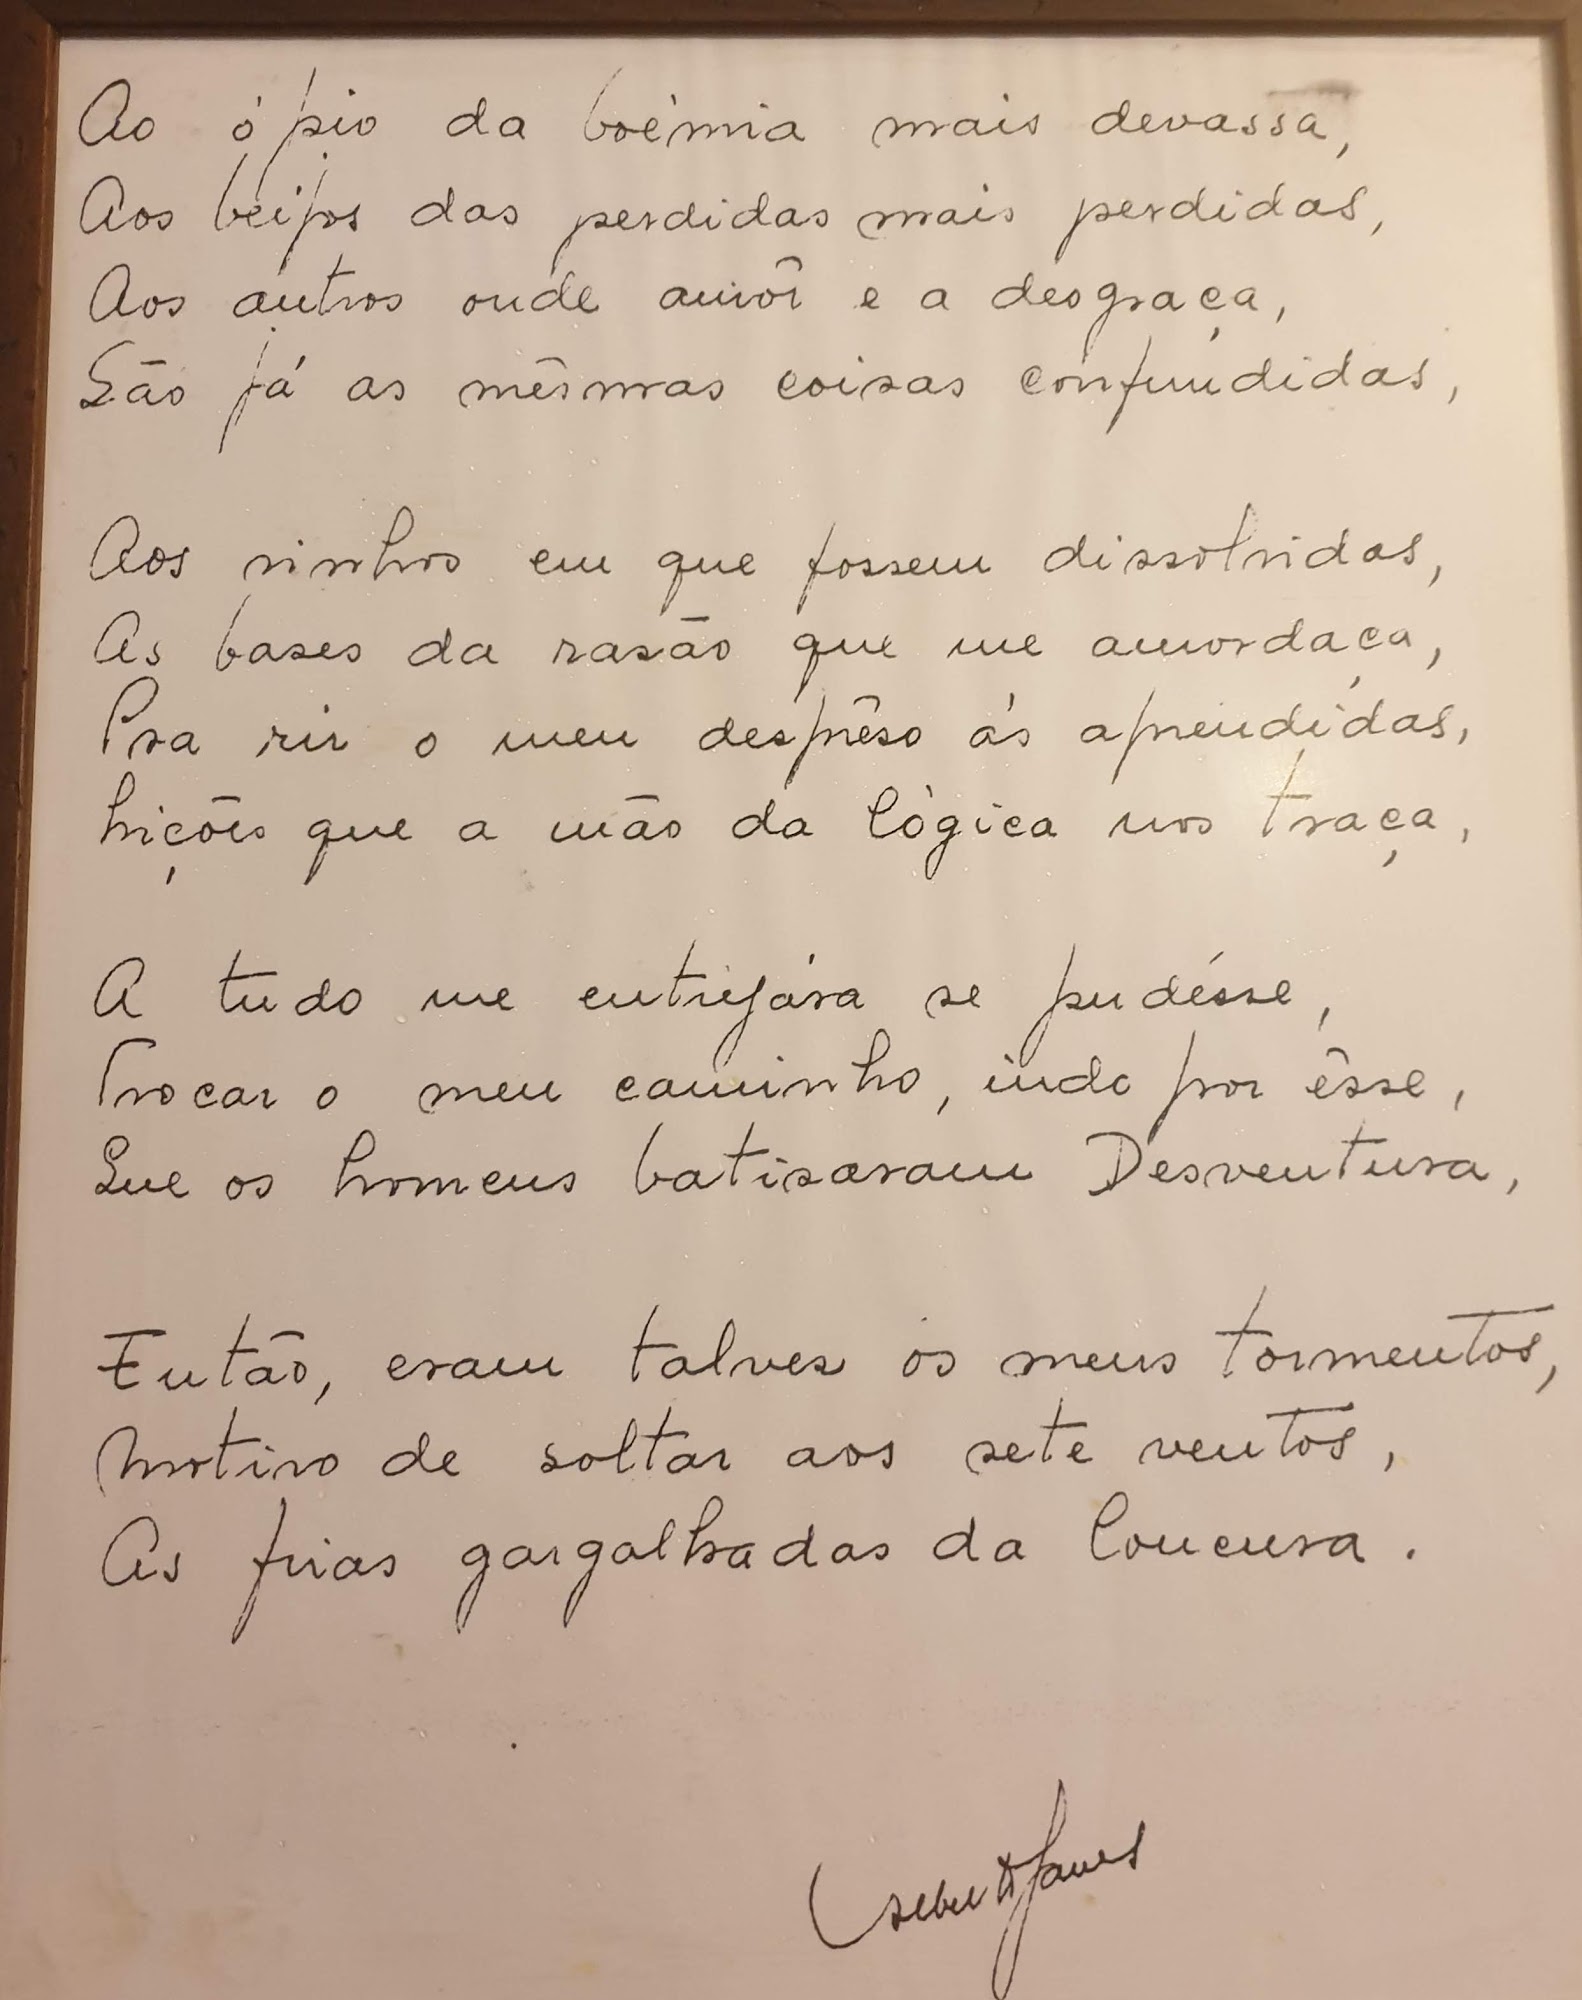 Ao ópio da boémia mais devassa,
Aos beijos das perdidas mais perdidas,
Aos antros onde amôr e a desgraça,
São já as mêsmas coisas confundidas,
Aos vinhos em que fossem dissolvidas,
As bases da rasão que me amordaça,
Pra rir o meu desprêso ás aprendidas,
Lições que a mão da lógica nos traça,
A tudo me entregára se pudésse,
Trocar o meu caminho, indo por êsse,
Que os homens batisaram Desventura,
Então, eram talvez os meus tormentos,
Motivo de soltar aos sete ventos,
As frias gargalhadas da loucura.